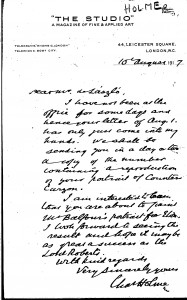 HOLME
"THE STUDIO"
A MAGAZINE OF FINE & APPLIED ART
44, LEICESTER SQUARE,
LONDON, W.C.
15 August 1917
Dear Mr de László,
I have not been at the
office for some days and
hence your letter of Aug 1.
has only just come into my
hands. We shall be
sending you in a day after
a copy of the number
containing a reproduction
of your portrait of Countess
Curzon.
I am interested to learn
that you are about to paint
Mr Balfour's portrait for Eton.
I look forward to seeing the
result and hope it may be
as great a success as the
Lord Roberts.
With kind regards,
Very sincerely yours
Chas Holme